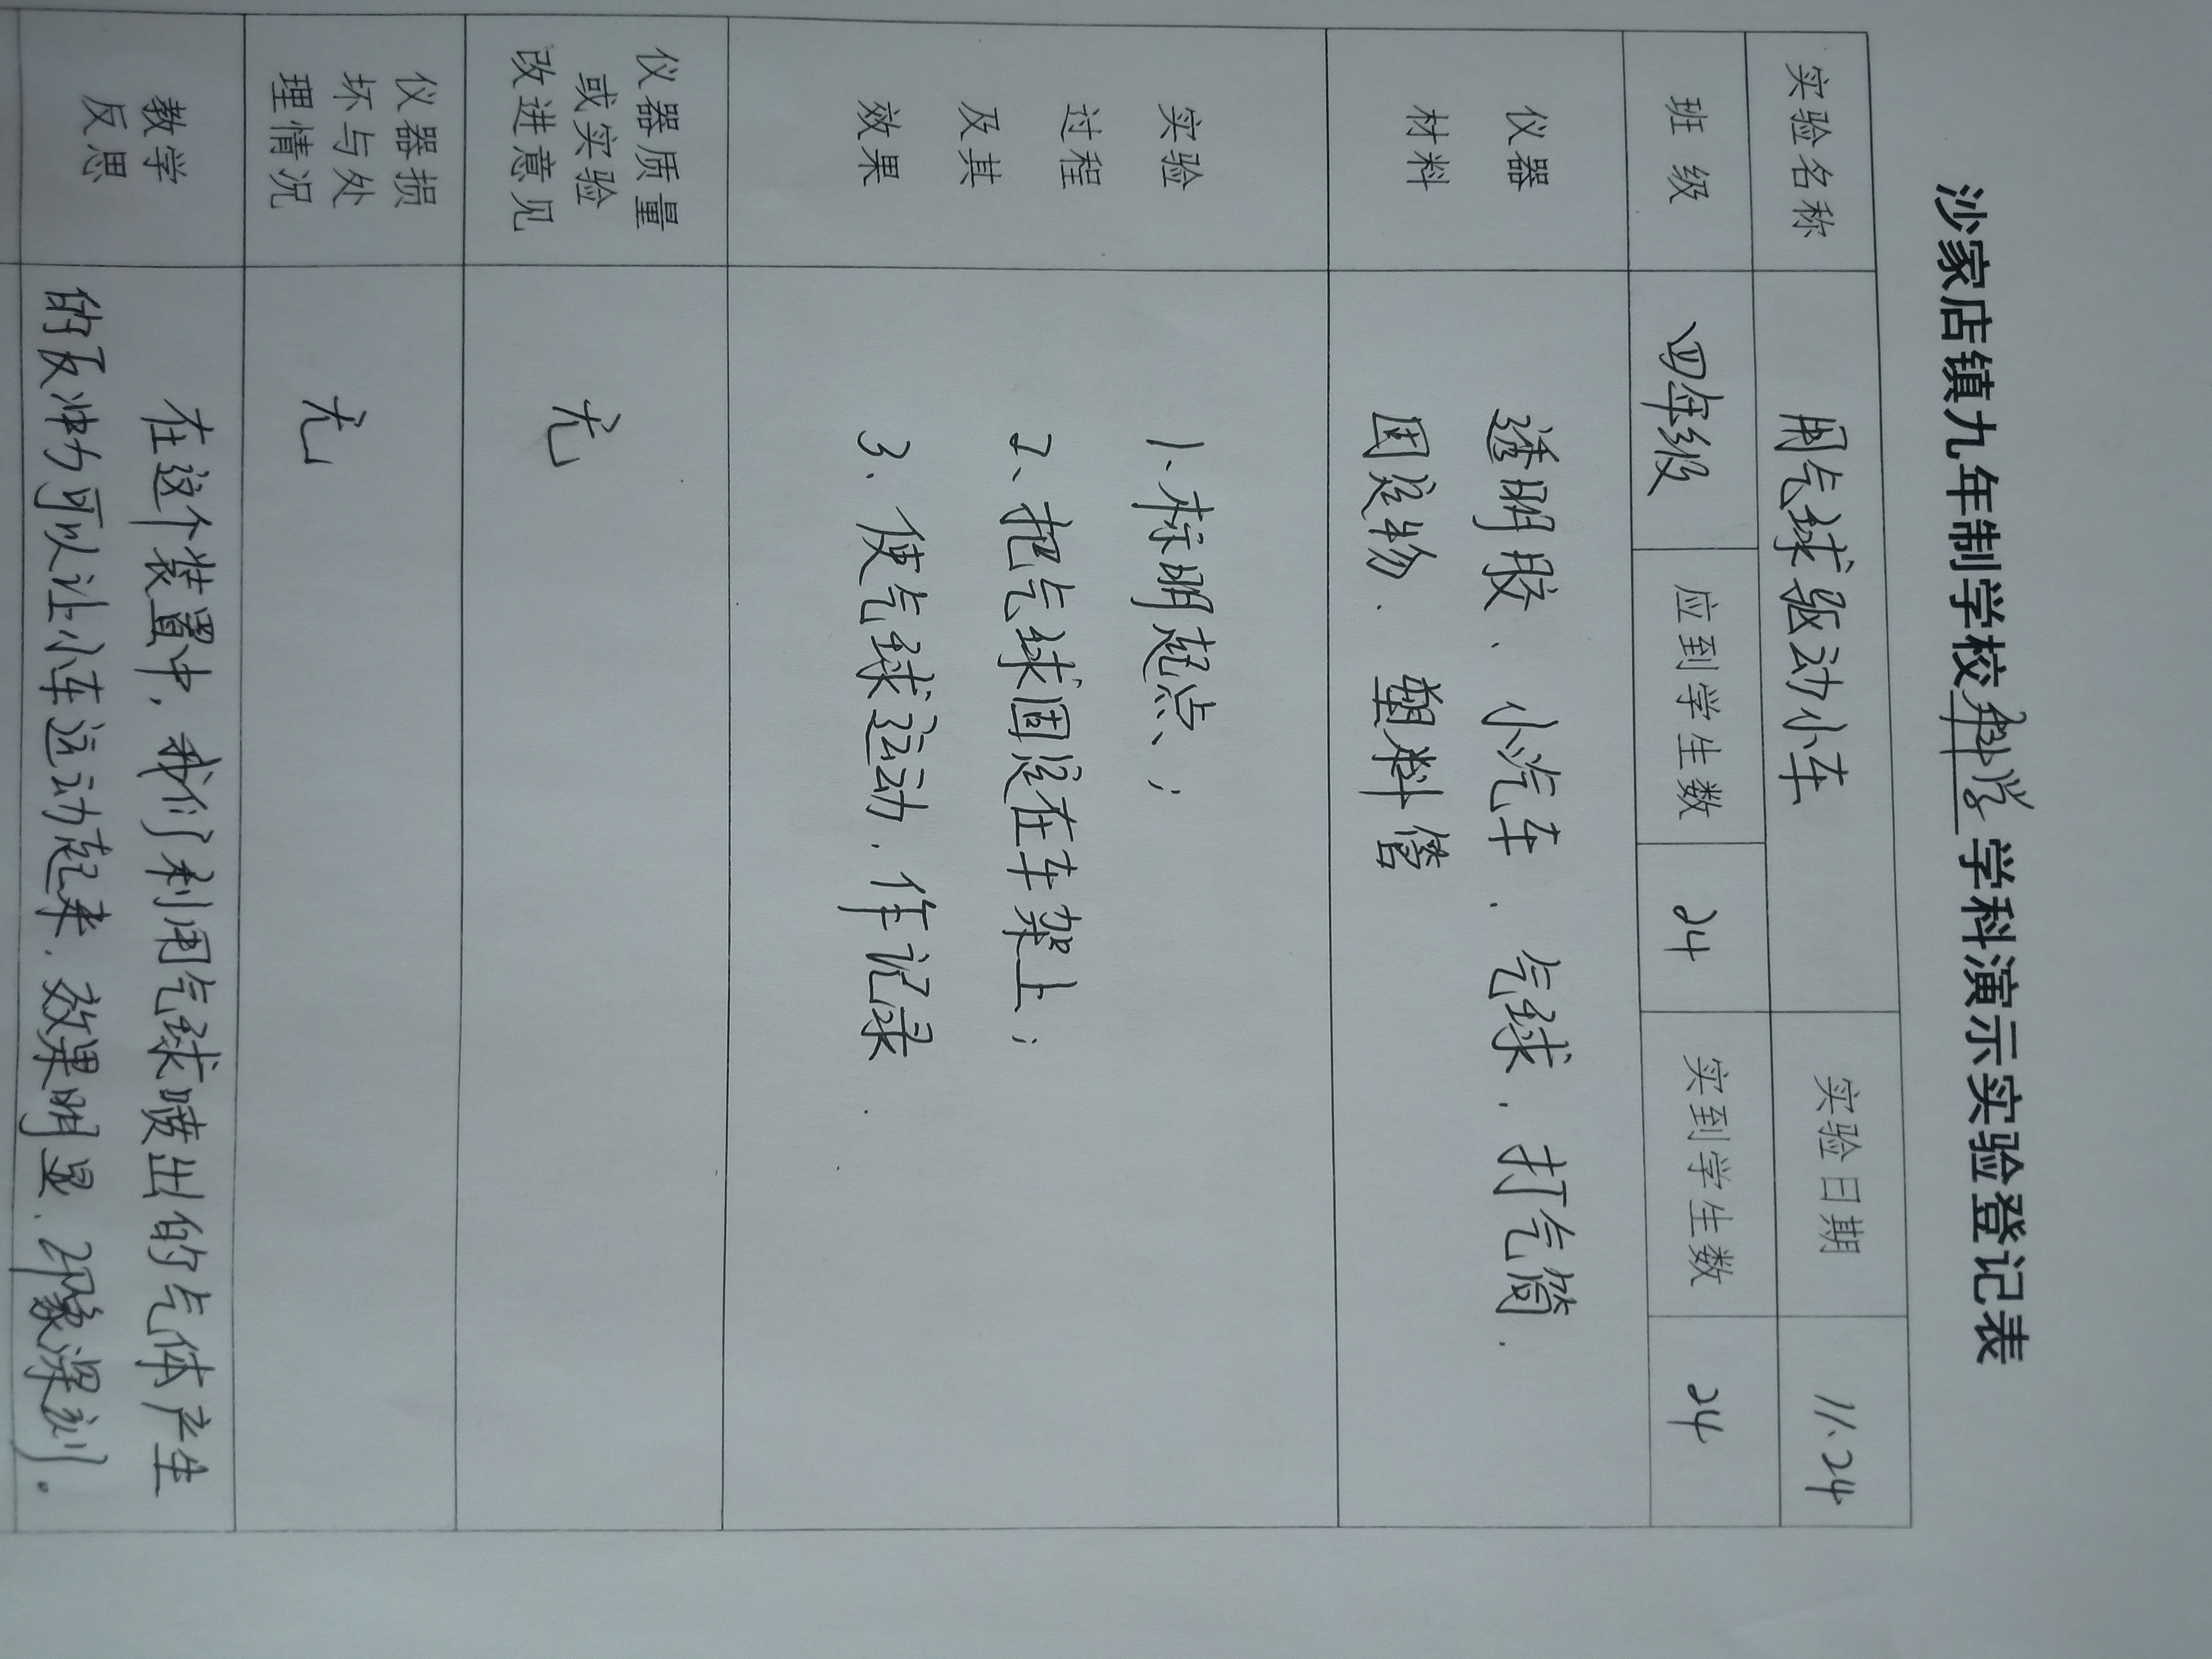 沙家店镇九年制学校科学学科演示实验登记表
实验名称 用气球驱动小车 实验日期 11、24
班级 四年级 应到学生数 24 实到学生数 24
仪器 透明胶、小汽车、气球、打气筒、
材料 固定物、塑料管
实验 1、标明起点;
过程 2、把气球固定在车架上;
及其
效果 3、使气球运动,作记录.
仪器质量
或实验 无
改进意见
仪器损
坏与处
理情况 无
教学 在这个装置中,我们利用气球喷出的气体产生
反思 的反冲力可以让小车运动起来,效果明显,印象深刻。